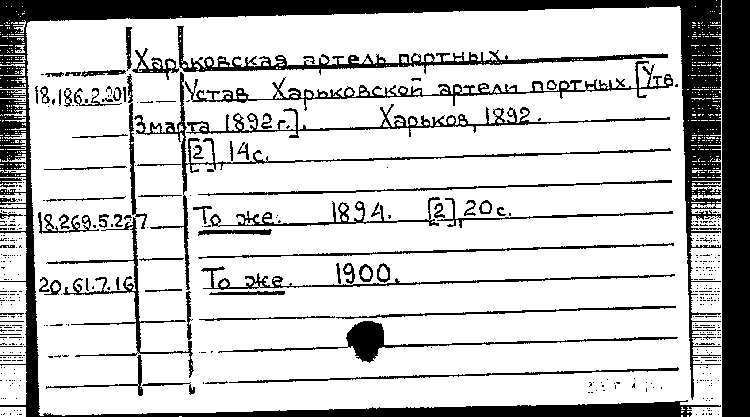 Харьковская артель портных.
18.186.2.201 Устав Харьковской артели портных. [Утв.
3 марта 1892 г.]. Харьков, 1892.
[2], 14 с.
18.269.5.227 То же. 1894. [2], 20 с.
20.61.7.16 То же. 1900.